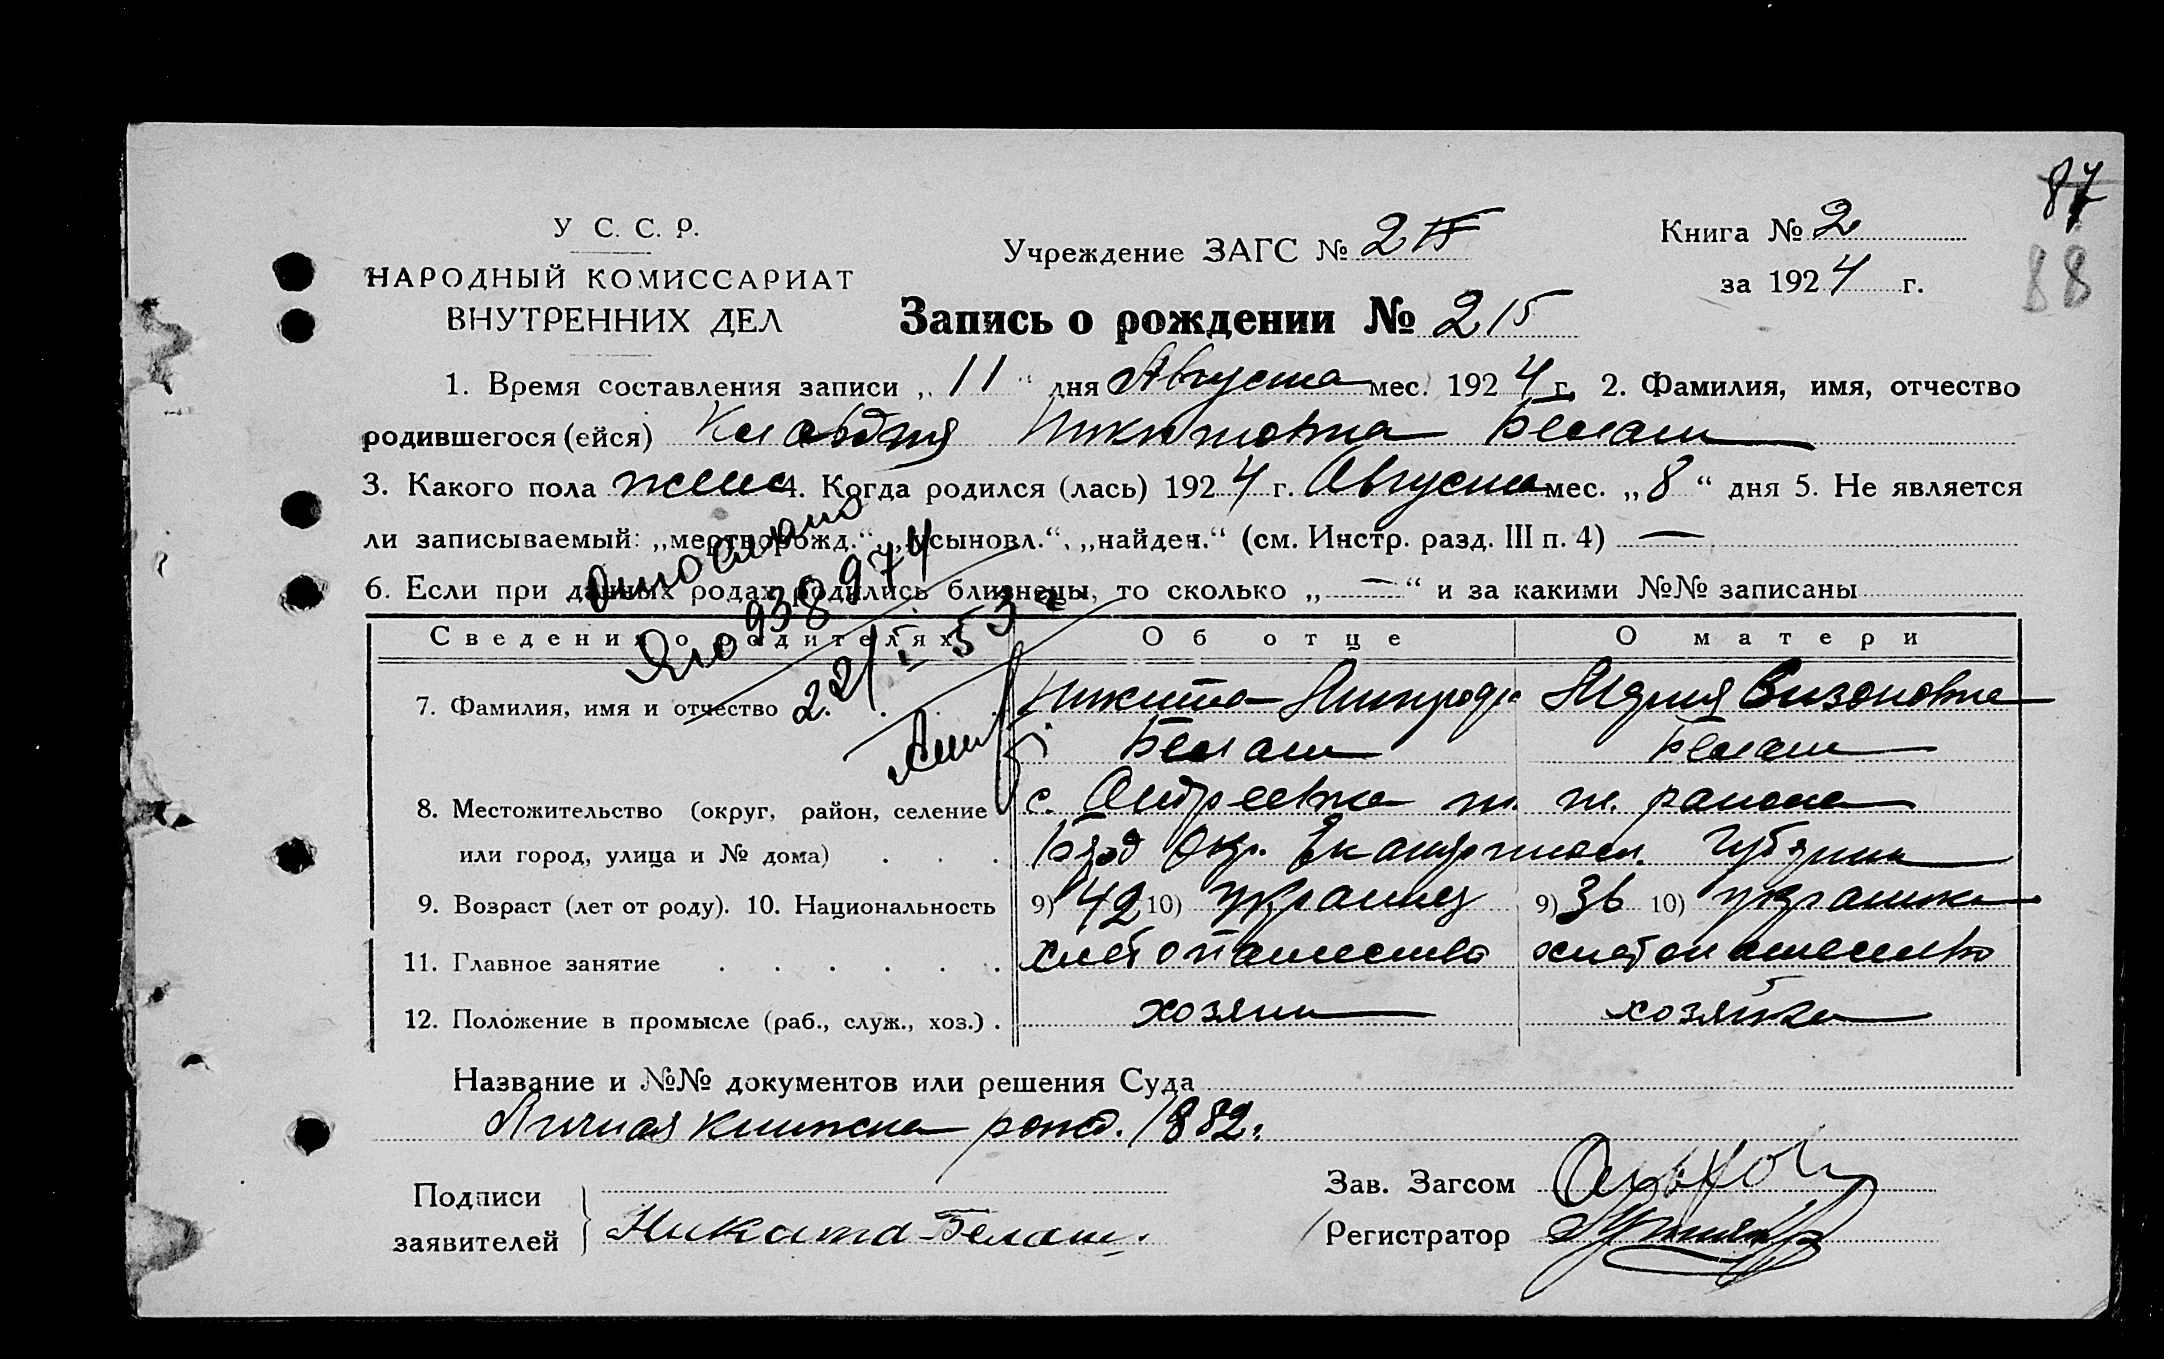 87
88
У С. С. Р.
НАРОДНЫЙ КОМИССАРИАТ
ВНУТРЕННИХ ДЕЛ
Учреждение ЗАГС № 2
Книга № 2
за 1924 г.
Запись о рождении № 215
1. Время составления записи „ 11 “ дня Августа мес. 1924 г. 2. Фамилия, имя, отчество
родившегося (ейся) Клавдия Никитовна Белаш
3. Какого пола женс 4. Когда родился (лась) 1924 г. Августа мес. „ 8 “ дня 5. Не является
ли записываемый: „мертворожд.“, „усыновл.“, „найден.“ (см. Инстр. разд. III п. 4) —
6. Если при данных родах родились близнецы, то сколько „ — “ и за какими №№ записаны
Сведения о родителях Об отце О матери
7. Фамилия, имя и отчество Никита Белаш Мария Белаш
8. Местожительство (округ, район, селение или город, улица и № дома) . . . с. Андреевка т. ж. района
Бярд Окр. Екатериносл. Губернии
9. Возраст (лет от роду). 10. Национальность 9) 42 10) украинец 9) 36 10) украинка
11. Главное занятие . . . . . . хлебопашество хлебопашество
12. Положение в промысле (раб., служ., хоз.) . хозяин хозяйка
938974
Название и №№ документов или решения Суда
Личная книжка рожд. 1882.
Подписи заявителей Никита Белаш.
Зав. Загсом
Регистратор